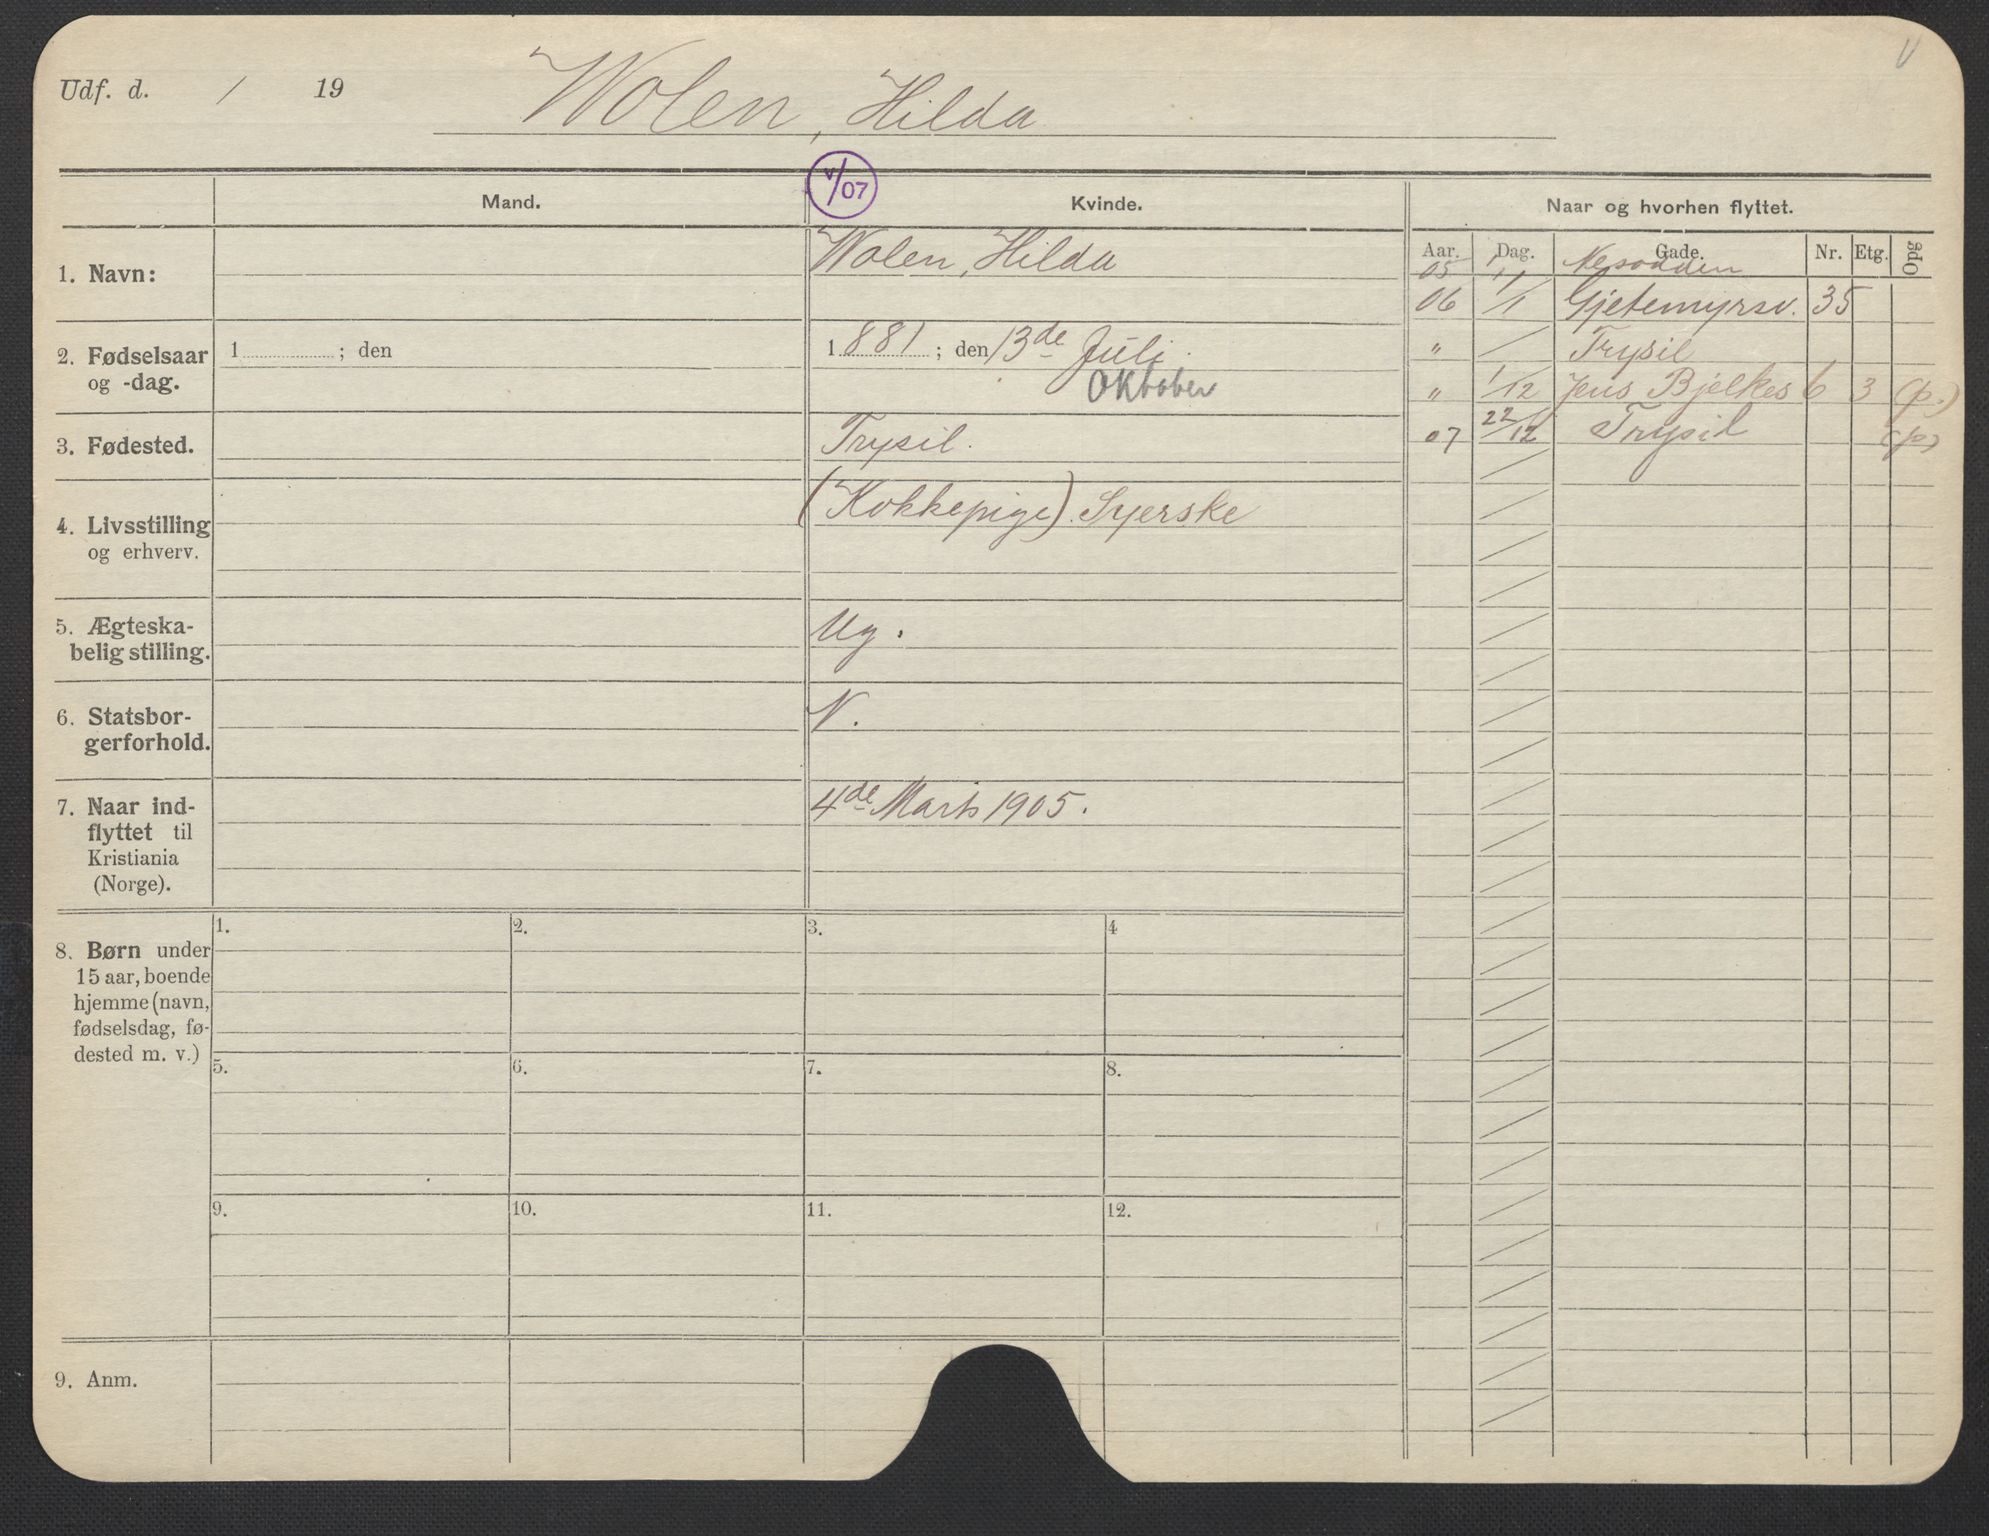 Udf. d. / 19
Wolen, Hilda
V/07
Mand.
Kvinde.
Naar og hvorhen flyttet.
Aar. Dag. Gade. Nr. Etg. Opg
1. Navn:
Wolen, Hilda
2. Fødselsaar
og -dag.
1 ; den
1881; den 13de Juli.
Oktober
3. Fødested.
Trysil.
4. Livsstilling
og erhverv.
(Kokkepige). Syerske
5. Ægteska-
belig stilling.
Ug.
6. Statsbor-
gerforhold.
N.
7. Naar ind-
flyttet til
Kristiania
(Norge).
4de Marts 1905.
05 1/11 Nesodden
06 1/1 Gjetemyrsv. 35
" / Trysil
" 1/12 Jens Bjelkes 6 3 (p.)
07 22/12 Trysil (p)
8. Børn under
15 aar, boende
hjemme (navn,
fødselsdag, fø-
dested m. v.)
1. 2. 3. 4
5. 6. 7. 8.
9. 10. 11. 12.
9. Anm.